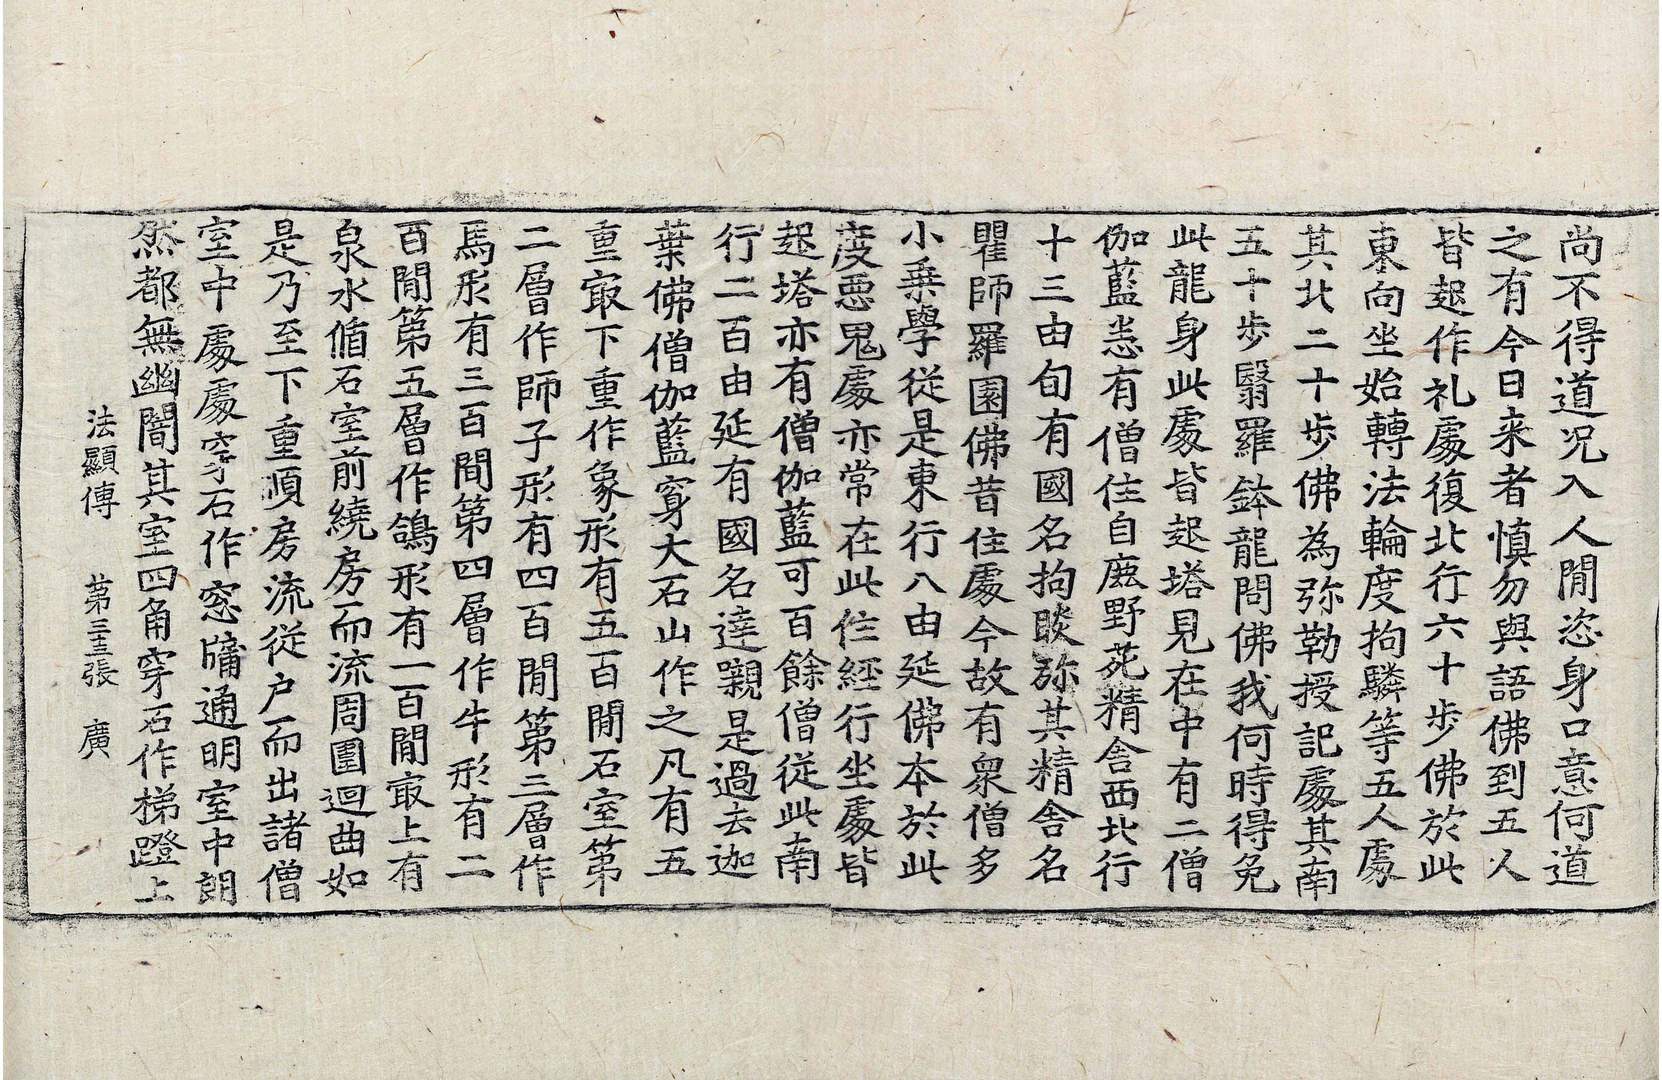 尚不得道况入人閒恣身口意何道
之有今日来者慎勿與語佛到五人
皆起作礼處復北行六十步佛於此
東向坐始轉法輪度拘驎等五人處
其北二十步佛為弥勒授記處其南
五十步翳羅鉢龍問佛我何時得免
此龍身此處皆起塔見在中有二僧
伽藍悉有僧住自鹿野苑精舍西北行
十三由旬有國名拘睒弥其精舍名
瞿師羅園佛昔住處今故有衆僧多
小乗學從是東行八由延佛本於此
度惡鬼處亦常在此住經行坐處皆
起塔亦有僧伽藍可百餘僧從此南
行二百由延有國名達嚫是過去迦
葉佛僧伽藍穿大石山作之凡有五
重冣下重作象形有五百閒石室第
二層作師子形有四百閒第三層作
馬形有三百間第四層作牛形有二
百閒第五層作鴿形有一百閒冣上有
泉水循石室前繞房而流周圍迴曲如
是乃至下重順房流從户而出諸僧
室中處處穿石作窓牖通明室中朗
然都無幽闇其室四角穿石作梯蹬上
法顯傳 第三十三張 廣